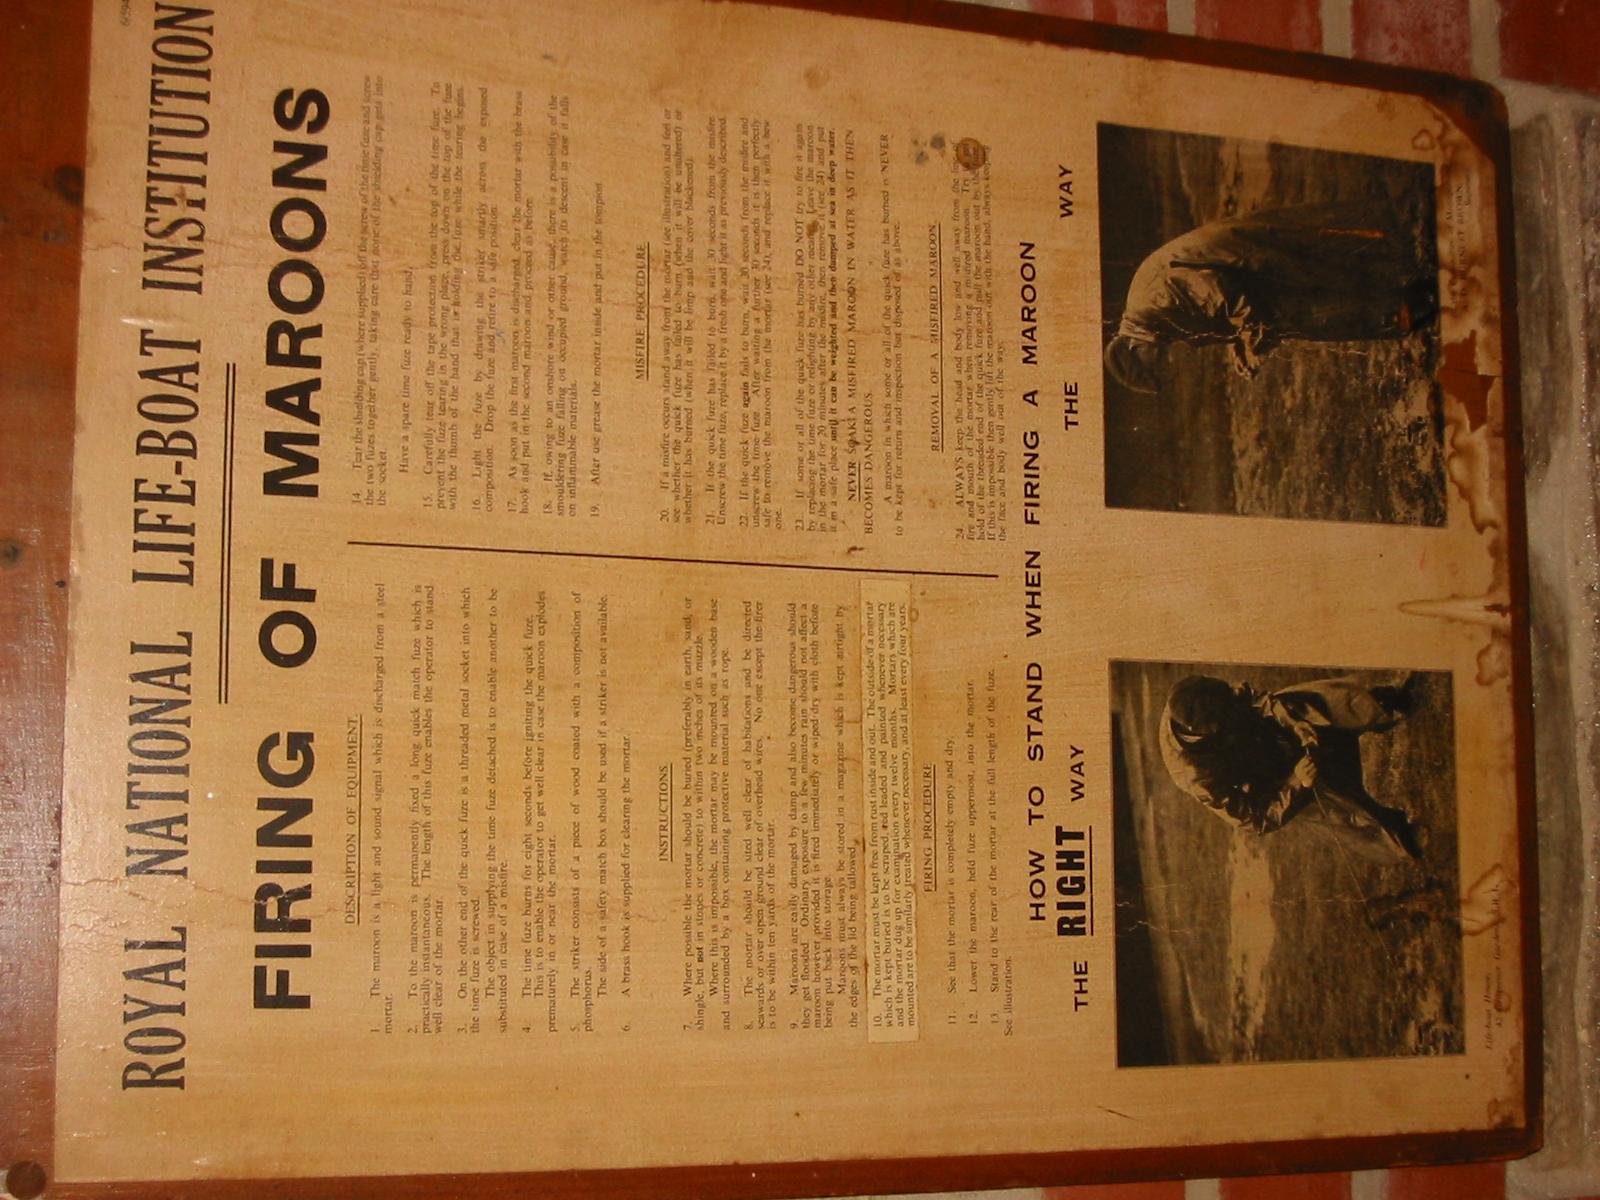 ROYAL NATIONAL LIFE-BOAT INSTITUTION
FIRING OF MAROONS
DESCRIPTION OF EQUIPMENT.
1. The maroon is a light and sound signal which is discharged from a steel
mortar.
2. To the maroon is permanently fixed a long, quick match fuze which is
practically instantaneous. The length of this fuze enables the operator to stand
well clear of the mortar.
3. On the other end of the quick fuze is a threaded metal socket into which
the time fuze is screwed.
The object in supplying the time fuze detached is to enable another to be
substituted in case of a misfire.
4. The time fuze burns for eight seconds before igniting the quick fuze.
This is to enable the operator to get well clear in case the maroon explodes
prematurely in or near the mortar.
5. The striker consists of a piece of wood coated with a composition of
phosphorus.
The side of a safety match box should be used if a striker is not available.
6. A brass hook is supplied for clearing the mortar.
INSTRUCTIONS.
7. Where possible the mortar should be buried (preferably in earth, sand, or
shingle, but not in stones or concrete) to within two inches of its muzzle.
Where this is impossible, the mortar may be mounted on a wooden base
and surrounded by a box containing protective material such as rope.
8. The mortar should be sited well clear of habitations and be directed
seawards or over open ground clear of overhead wires. No one except the firer
is to be within ten yards of the mortar.
9. Maroons are easily damaged by damp and also become dangerous should
they get flooded. Ordinary exposure to a few minutes rain should not affect a
maroon however provided it is fired immediately or wiped dry with cloth before
being put back into storage.
Maroons must always be stored in a magazine which is kept airtight by
the edges of the lid being tallowed.
10. The mortar must be kept free from rust inside and out. The outside of a mortar
which is kept buried is to be scraped, red leaded and painted whenever necessary
and the mortar dug up for examination every twelve months. Mortars which are
mounted are to be similarly treated whenever necessary, and at least every four years.
FIRING PROCEDURE
11. See that the mortar is completely empty and dry.
12. Lower the maroon, held fuze uppermost, into the mortar.
13. Stand to the rear of the mortar at the full length of the fuze.
See illustration.
14. Tear the shielding cap (where supplied) off the screw of the time fuze and screw
the two fuzes together gently, taking care that none of the shielding cap gets into
the socket.
Have a spare time fuze ready to hand.
15. Carefully tear off the tape protection from the top of the time fuze. To
prevent the fuze tearing in the wrong place, press down on the top of the fuze
with the thumb of the hand that is holding the fuze while the tearing begins.
16. Light the fuze by drawing the striker smartly across the exposed
composition. Drop the fuze and retire to a safe position.
17. As soon as the first maroon is discharged, clear the mortar with the brass
hook and put in the second maroon and proceed as before.
18. If, owing to an onshore wind or other cause, there is a possibility of the
smouldering fuze falling on occupied ground, watch its descent in case it falls
on inflammable materials.
19. After use grease the mortar inside and put in the tompion
MISFIRE PROCEDURE
20. If a misfire occurs stand away from the mortar (see illustration) and feel or
see whether the quick fuze has failed to burn (when it will be unaltered) or
whether it has burned (when it will be limp and the cover blackened).
21. If the quick fuze has failed to burn, wait 30 seconds from the misfire.
Unscrew the time fuze, replace it by a fresh one and light it as previously described.
22. If the quick fuze again fails to burn, wait 30 seconds from the misfire and
unscrew the time fuze. After waiting a further 30 seconds it is then perfectly
safe to remove the maroon from the mortar (see 24), and replace it with a new
one.
23. If some or all of the quick fuze has burned DO NOT try to fire it again
by replacing the time fuze or relighting by any other means. Leave the maroon
in the mortar for 20 minutes after the misfire, then remove it (see 24) and put
it in a safe place until it can be weighted and then dumped at sea in deep water.
NEVER SOAK A MISFIRED MAROON IN WATER AS IT THEN
BECOMES DANGEROUS.
A maroon in which some or all of the quick fuze has burned is NEVER
to be kept for return and inspection but disposed of as above.
REMOVAL OF A MISFIRED MAROON.
24. ALWAYS keep the head and body low and well away from the
fire and mouth of the mortar when removing a misfired maroon. Try
hold of the threaded end of the quick fuze and pull the maroon out by the
If this is impossible then gently lift the maroon out with the hand always keeping
the face and body well out of the way.
HOW TO STAND WHEN FIRING A MAROON
THE RIGHT WAY
THE WAY
Life-boat House,